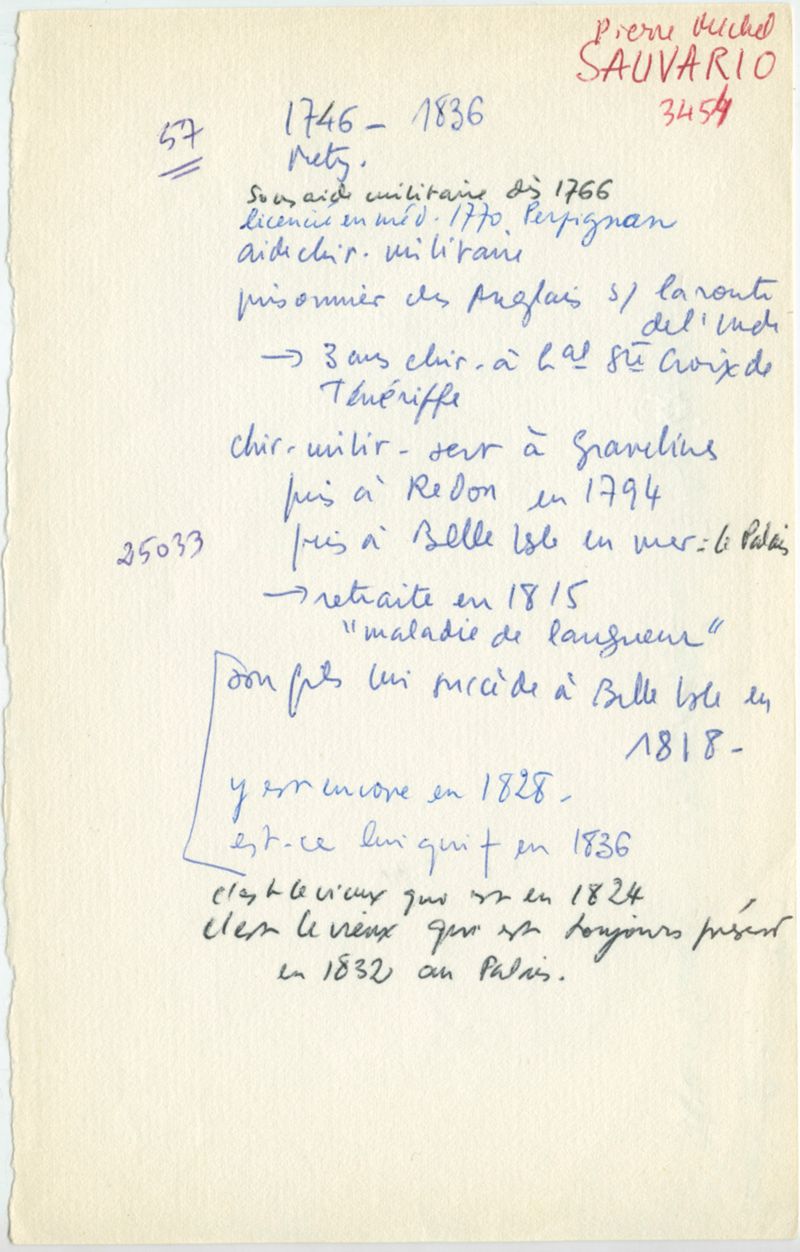 Pierre Michel
SAUVARIO
3454
57
1746 - 1836
Metz.
Sous aide militaire dès 1766
licencié en méd. 1770 Perpignan
aide chir. militaire
prisonnier des Anglais s/ la route
de l'Inde
→ 3 ans chir. à hal Ste Croix de
Ténériffe
chir. milit. sert à Gravelines
puis à Redon en 1794
25033
puis à Belle Isle en mer = le Palais
→ retraite en 1815
"maladie de langueur"
son fils lui succède à Belle Isle en
1818 -
y est encore en 1828 -
est-ce lui qui † en 1836
c'est le vieux qui est en 1824
c'est le vieux qui est toujours présent
en 1832 au Palais.